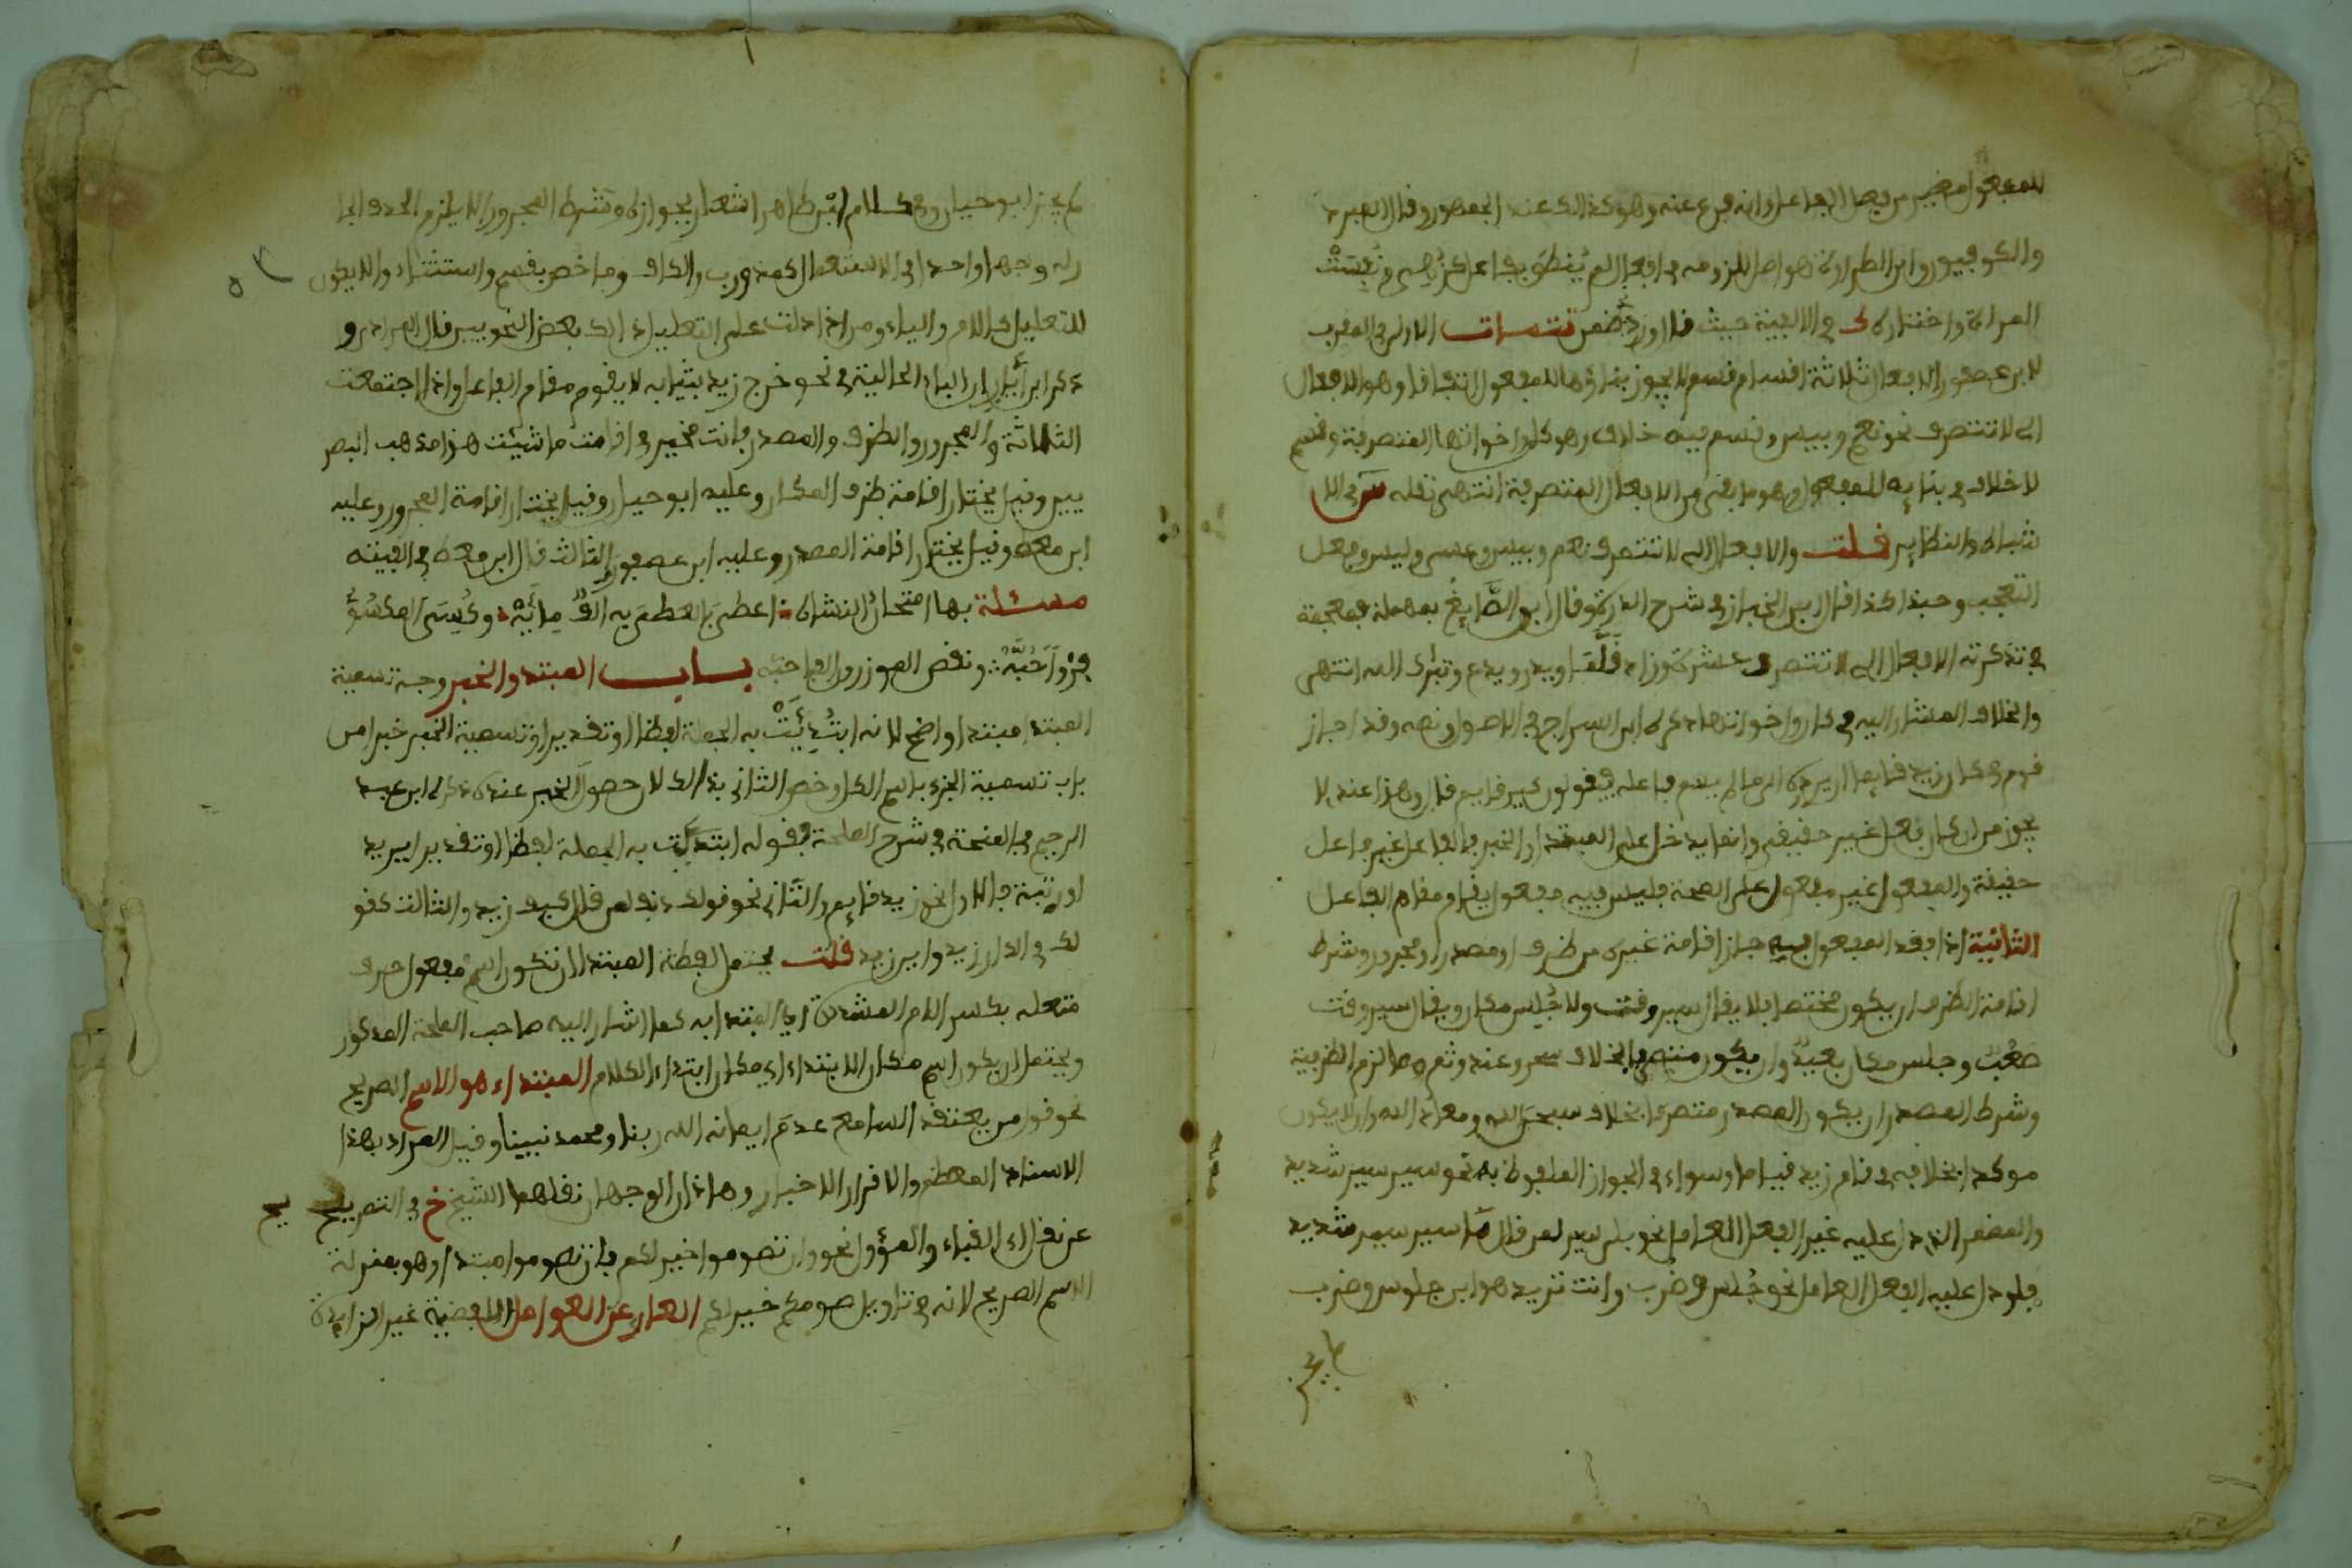 للمفعول مغير من فعل الفاعل وانه فرع عنه وهو كذلك عند الجمهور وقال المبرد
والكوفيون وابن الطراوة هو اصل للزومه في افعال لم ينطق بفاعل كزهي ونفست
المراة واختاره في الالفية حيث قال تتمات الاولى في المقرب
لابن عصفور الافعال ثلاثة اقسام قسم لا يجوز بناؤه للمفعول اتفاقا وهو الافعال
التي لا تتصرف نحو نعم وبيس وقسم فيه خلاف وهو كان واخواتها المتصرفة وقسم
لا خلاف في بنايه للمفعول وهو ما بقي من الافعال المتصرفة انتهى نقله س في الا
شباه والنظاير قلت والافعال التي لا تتصرف نعم وبيس وعسى وليس وفعل
التعجب وحبذا كذا قال ابن الخباز في شرح الدرة وقال ابن الصايغ بمهملة فمعجمة
في تذكرته الافعال التي لا تتصرف عشرة وزاد قلما ويذر ويدع وتبرك الله انتهى
والخلاف المشار اليه في كان واخواتها ذكره ابن السراج في الاصول ونصه وقد اجاز
قوم في كان زيد قايما ان يرده الى ما لم يسم فاعله فيقولون كين قايم قال وهذا عندي لا
يجوز من ان كان فعل غير حقيقي وانما يدخل على المبتدا والخبر فالفاعل غير فاعل
حقيقة والمفعول غير مفعول على الصحة فليس فيه مفعول يقام مقام الفاعل
الثانية اذا فقد المفعول فيه جاز اقامة غيره من ظرف او مصدر او مجرور وشرط
اقامة الظرف ان يكون مختصا فلا يقال سير وقت ولا جلس مكان ويقال سير وقت
صعب وجلس مكان بعيد وان يكون متصرفا بخلاف سحر وعند وثم مما لزم الظرفية
وشرط المصدر ان يكون المصدر متصرفا بخلاف سبحن الله ومعاذ الله وان لا يكون
موكدا بخلافه في قام زيد قياما وسواء في الجواز الملفوظ به نحو سير سير شديد
والمضمر الذي دل عليه غير الفعل العامل نحو بلى سير لمن قال ما سير سير شديد
فلو دل عليه الفعل العامل نحو جلس وضرب وانت تريد هو اي جلوس وضرب
لم يجز
لم يجز ابو حيان وفي كلام ابن طاهر اشعار بجوازه وشرط المجرور الا يلزم الحرف الجا
ر له وجها واحدا في الاستعمال كمنذ ورب والكاف وما خص بقسم واستثناء والا يكون
للتعليل كاللام والباء ومن اذا دلت على التعليل ذلك بعض النحويين قال المرادي و
ذكر ابن اياز ان الباء الحالية في نحو خرج زيد بثيابه لا يقوم مقام الفاعل واذا اجتمعت
الثلاثة والمجرور والظرف والمصدر فانت مخير في اقامت ما شيئت هذا مذهب البصر
يين وقيل يختار اقامة ظرف المكان وعليه ابو حيان وقيل يختار اقامة المجرور وعليه
ابن معط وقيل يختار اقامة المصدر وعليه ابن عصفور الثالث قال ابن معط في الفيته
مسئلة بها امتحان النشاة اعطي بالمعطى به الف مائه وكسي المكسو
فروا جبه ونقص الموزون الفا حبه باب المبتدا والخبر وجه تسمية
المبتدا مبتدا واضح لانه ابتدئت به الجملة لفظا او تقديرا وتسمية الخبر خبرا من
باب تسمية الجزء باسم الكل وخص الثاني بذلك لان حصول الخبر عنده ذكره ابن عبد
الرحيم في المنحة في شرح الملحة فقوله ابتديت به الجملة لفظا او تقديرا يريد
او رتبة فالاول نحو زيد قايم والثاني نحو قولك دنف لمن قال كيف زيد والثالث كقو
لك في الدار زيد واين زيد قلت يحتمل لفظة المبتدا ان تكون اسم مفعول حرف
متعلقه بكسر اللام المشددة اي المبتدا به كما اشار اليه صاحب الملحة المذكور
ويحتمل ان يكون اسم مكان الابتداء اي مكان ابتداء الكلام المبتداء هو الاسم الصريح
نحو قول من يعتقد السامع عدم ايمانه الله ربنا ومحمد نبينا وقيل المراد بهذا
الاسناد المعظم والاقرار لا الاخبار وهاذان الوجهان نقلهما الشيخ خ في التصريح
عن نقل القباء والمؤول نحو وان تصوموا خير لكم فان تصوموا مبتدا وهو بمنزلة
الاسم الصريح لانه في تاويل صومكم خير لكم العاري عن العوامل اللفظية غير الزايدة